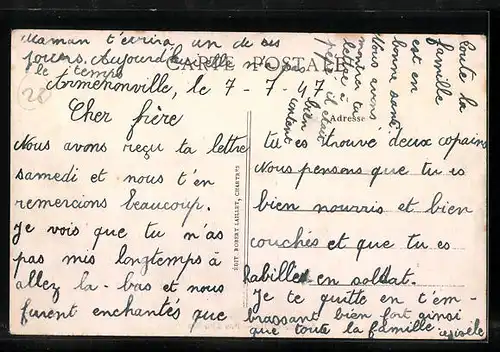 Maman t'écrira un de ses
jours. Aujourd'hui elle n'a pas
le temps
CARTE POSTALE
Armenonville, le 7-7-47
28
Cher frère
Nous avons reçu ta lettre
samedi et nous t'en
remercions beaucoup.
Je vois que tu n'as
pas mis longtemps à
allez la-bas et nous
furent enchantés que
EDIT. ROBERT LAILLET, CHARTRES
Adresse
tu es trouvé deux copains
Nous pensons que tu es
bien nourris et bien
couchés et que tu es
habillée en soldat.
Je te quitte en t'em-
brassant bien fort ainsi
que toute la famille
Gisèle
Toute la
famille
est en
bonne santé.
Nous avons
montrer ta
lettre à
pépé il était
bien
content